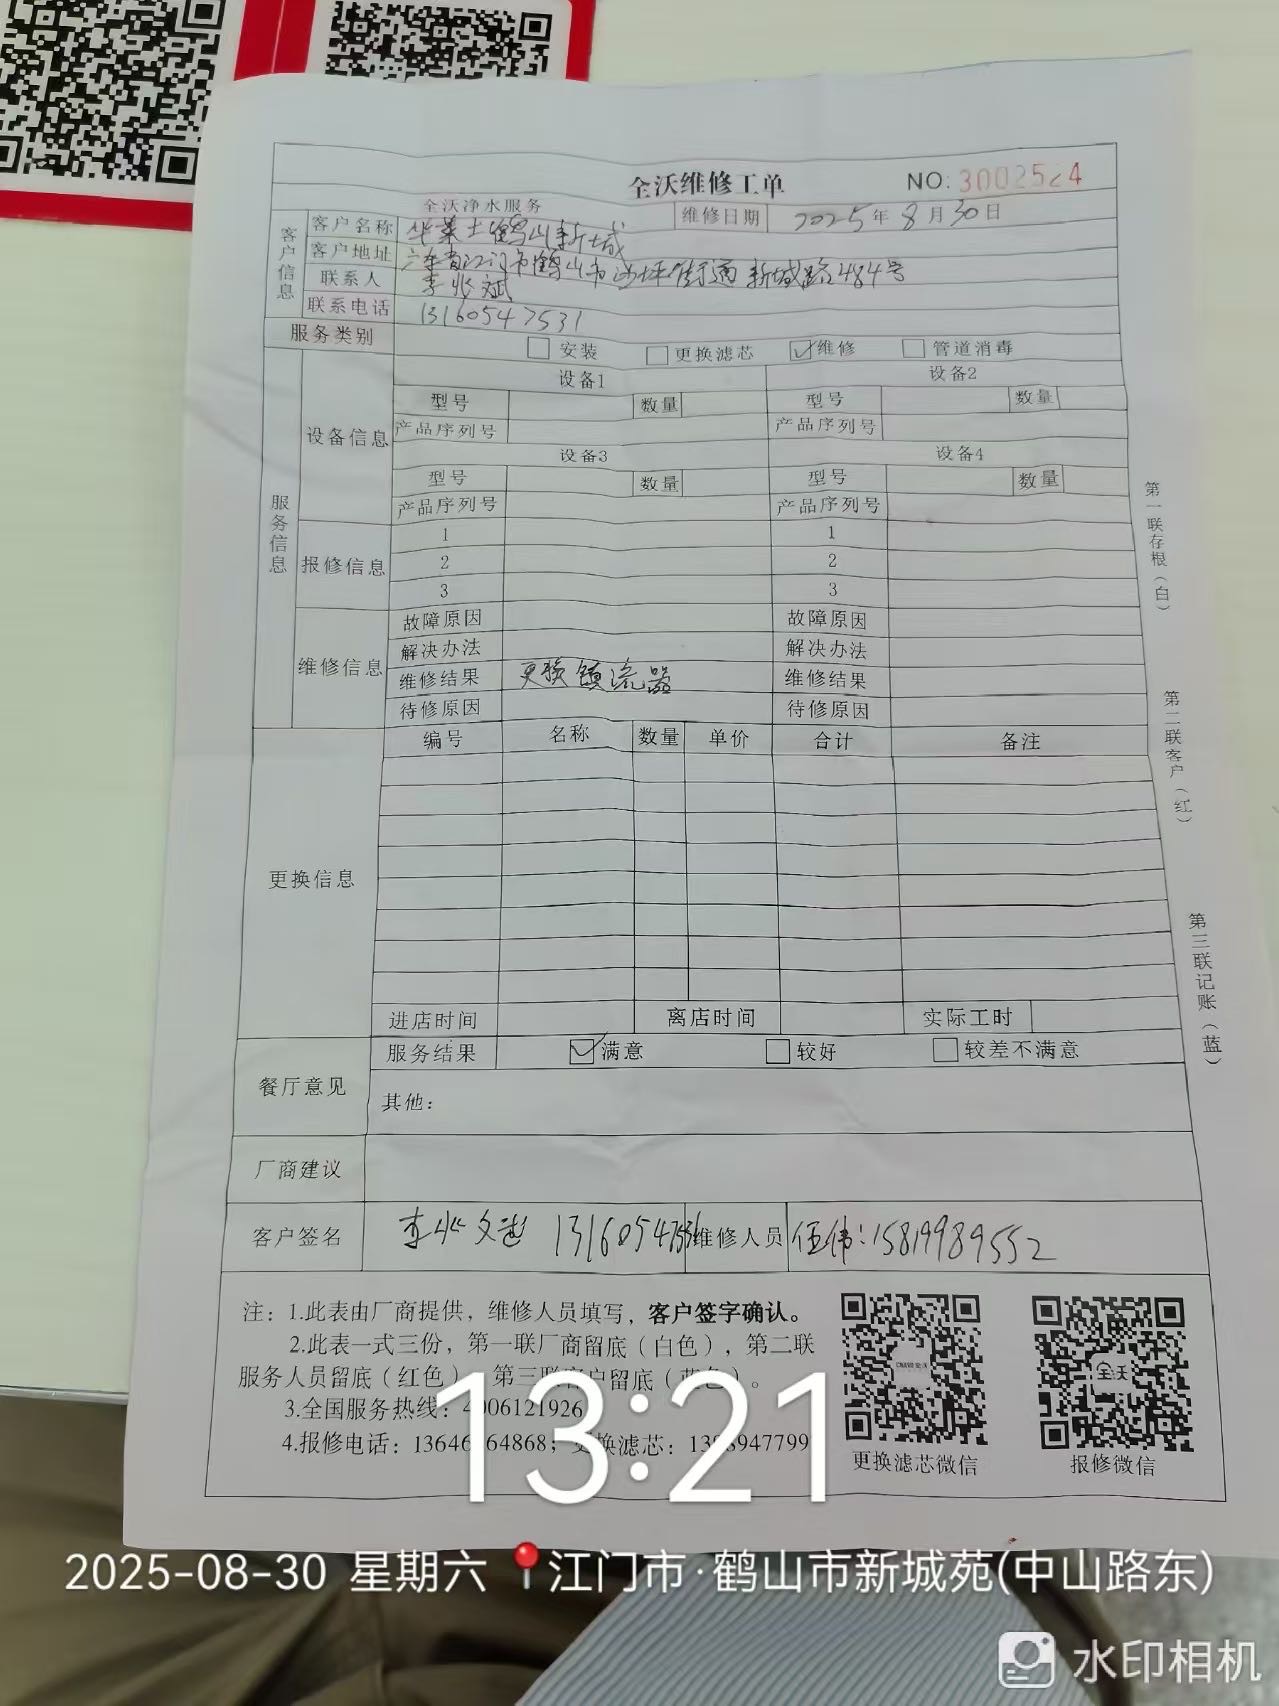 全沃维修工单
NO: 3002524
全沃净水服务
维修日期 2025年8月30日
客户信息
客户名称 华莱士鹤山新城
客户地址 广东省江门市鹤山市沙坪街道新城路484号
联系人 李兆斌
联系电话 13160547531
服务类别 安装 更换滤芯 维修 管道消毒
服务信息
设备信息
设备1 设备2
型号 数量 型号 数量
产品序列号 产品序列号
设备3 设备4
型号 数量 型号 数量
产品序列号 产品序列号
报修信息
1 1
2 2
3 3
维修信息
故障原因 故障原因
解决办法 解决办法
维修结果 更换镇流器 维修结果
待修原因 待修原因
更换信息
编号 名称 数量 单价 合计 备注
进店时间 离店时间 实际工时
餐厅意见
服务结果 满意 较好 较差不满意
其他:
厂商建议
客户签名 李兆斌 13160547531 维修人员 伍伟:15819989552
注: 1.此表由厂商提供，维修人员填写，客户签字确认。
2.此表一式三份，第一联厂商留底（白色），第二联
服务人员留底（红色），第三联客户留底（蓝色）。
3.全国服务热线: 4006121926
4.报修电话: 13646 64868; 更换滤芯: 13 8947799
更换滤芯微信
全沃
报修微信
第一联存根（白）
第二联客户（红）
第三联记账（蓝）
13:21
2025-08-30 星期六 江门市·鹤山市新城苑(中山路东)
水印相机